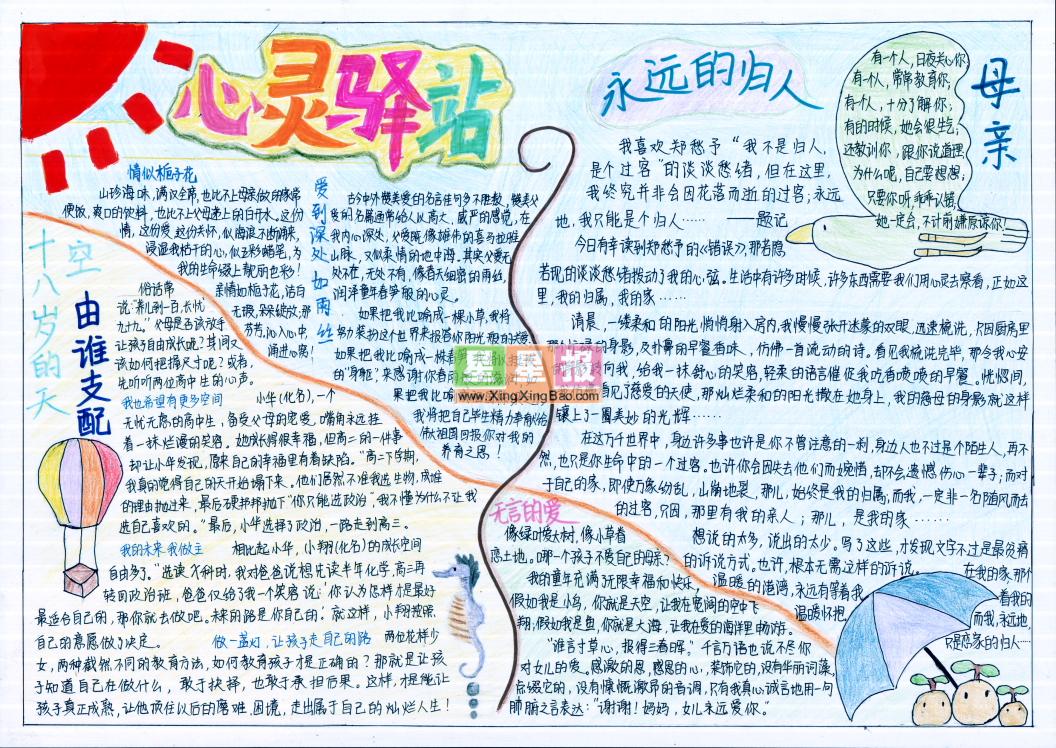 心灵驿站
情似栀子花
山珍海味,满汉全席,也比不上母亲做的家常
便饭,爽口的饮料,也比不上父母递上的白开水。这份
情,这份爱,这份关怀,似海浪不断涌来,
浸湿我枯干的心,似五彩蜡笔,为
我的生命缀上靓丽色彩!
亲情如栀子花,洁白
无瑕,朵朵绽放;那
芬芳,沁入心中,
涌进心窝!
十八岁的天空
由谁支配
俗话常
说:“养儿到一百,长忧
九十九。”父母是否该放手
让孩子自由成长呢?其间又
该如何把握尺寸呢?或者,
先听听两位高中生的心声。
我也希望有更多空间
小华(化名),一个
无忧无虑的高中生,备受父母的宠爱,嘴角永远挂
着一抹烂漫的笑容。她成长得很幸福,但高二的一件事
却让小华发现,原来自己的幸福里有着缺陷。“高一下学期,
我真的觉得自己的天开始塌下来。他们居然不准我选生物,成堆
的理由抛过来,最后硬邦邦抛下“你只能选政治”,我不懂为什么不让我
选自己喜欢的。”最后,小华选择了政治,一路走到高三。
我的未来我做主
相比起小华,小翔(化名)的成长空间
自由多了。“选读X科时,我对爸爸说想先读半年化学,高三再
转回政治班,爸爸仅给我一个笑容说:‘你认为怎样才是最好
最适合自己的,那你就去做吧。未来的路是你自己的.’就这样,小翔按照
自己的意愿做了决定。
做一盏灯,让孩子走自己的路
两位花样少
女,两种截然不同的教育方法,如何教育孩子才是正确的?那就是让孩
子知道自己在做什么,敢于抉择,也敢于承担后果。这样,才是能让
孩子真正成熟,让他顶住以后的磨难、困境,走出属于自己的灿烂人生!
爱到深处如雨丝
古今中外赞美爱的名言佳句多不胜数,赞美父
爱的名篇通常给人以高大、威严的感觉,在
我内心深处,父爱既像雄伟的喜马拉雅
山脉,又似柔情的地中海。其实父爱无
处不在,无处不有,像春天细密的雨丝,
润泽童年春笋般的心灵。
如果把我比喻成一棵小草,我将
努力装扮这个世界来报答你阳光般的关爱。
如果把我比喻成一棵
的“身躯”,来感谢你春雨
果把我比喻
我将把自己毕生精力奉献给
伟大祖国回报你对我的
养育之恩!
星星报
www.XingXingBao.com
永远的归人
我喜欢郑愁予“我不是归人,
是个过客”的淡淡愁绪,但在这里,
我终究并非会因花落而逝的过客;永远
地,我只能是个归人…… ——题记
今日有幸读到郑愁予的《错误》,那若隐
若现的淡淡愁绪拨动了我的心弦。生活中有许多时候,许多东西需要我们用心灵去察看,正如这
里,我的归属,我的家……
清晨,一缕柔和的阳光悄悄射入房内,我慢慢张开迷蒙的双眼,迅速梳洗,只因厨房里
的身影,及扑鼻的早餐香味,仿佛一首流动的诗。看见我梳洗完毕,那令我心安
向我,给我一抹舒心的笑容,轻柔的语言催促我吃香喷喷的早餐。恍惚间,
看见了慈爱的天使,那灿烂柔和的阳光撒在她身上,我的慈母的身影就这样
镶上了一圈美妙的光辉……
在这万千世界中,身边许多事也许是你不曾注意的一刹,身边人也不过是个陌生人,再不
然,也只是你生命中的一个过客。也许你会因失去他们而婉惜,却不会遗憾伤心一辈子;而对
于自己的家,即使万象纷乱,山崩地裂,那儿,始终是我的归属,而我,一定非一名随风而去
的过客,只因,那里有我的亲人;那儿,是我的家……
想说的太多,说出的太少。写了这些,才发现文字不过是最贫瘠
的诉说方式。也许,根本无需这样的诉说。
在我的家,那个
温暖的港湾,永远有等着我的
温暖怀抱。
而我,永远地,
只是恋家的归人……
母亲
有个人,日夜关心你;
有个人,常常教育你;
有个人,十分了解你;
有的时候,她会很生气;
还教训你,跟你说道理;
为什么呢,自己要想想;
只要你听乖乖认错,
她一定会,不计前嫌原谅你!
无言的爱
像绿叶偎大树,像小草眷
恋土地。哪一个孩子不爱自己的母亲?
我的童年充满了无限幸福和快乐,
假如我是小鸟,你就是天空,让我在宽阔的空中飞
翔,假如我是鱼,你就是大海,让我在爱的海洋里畅游。
“谁言寸草心,报得三春晖,”千言万语也说不尽你
对女儿的爱。感激的恩,感恩的心,装饰它的,没有华丽词藻,
点缀它的,没有慷慨激昂的音调,只有我真心诚言地用一句
肺腑之言表达:“谢谢!妈妈,女儿永远爱你。”